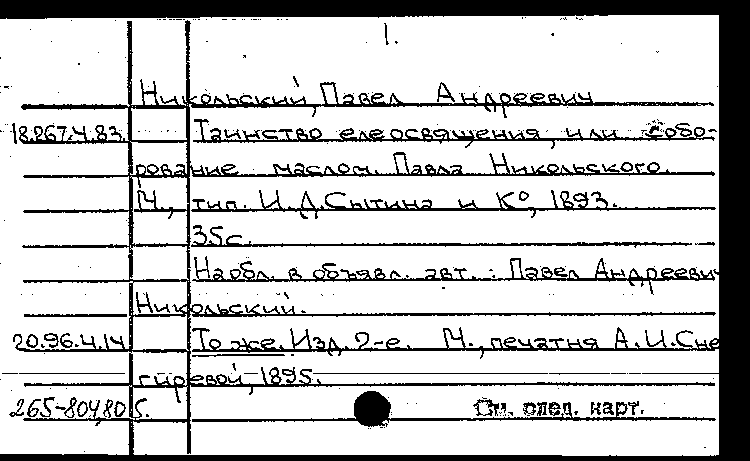 1.
Никольский, Павел Андреевич
18.267.4.83. Таинство елеосвящения, или собо-
рование маслом. Павла Никольского.
М., тип. И.Д.Сытина и К°, 1893.
35с.
На обл. в объявл. авт.: Павел Андреевич
Никольский.
20.96.4.14 То же. Изд. 2-е. М., печатня А.И.Сне
гиревой, 1895.
265-804,805. См. след. карт.